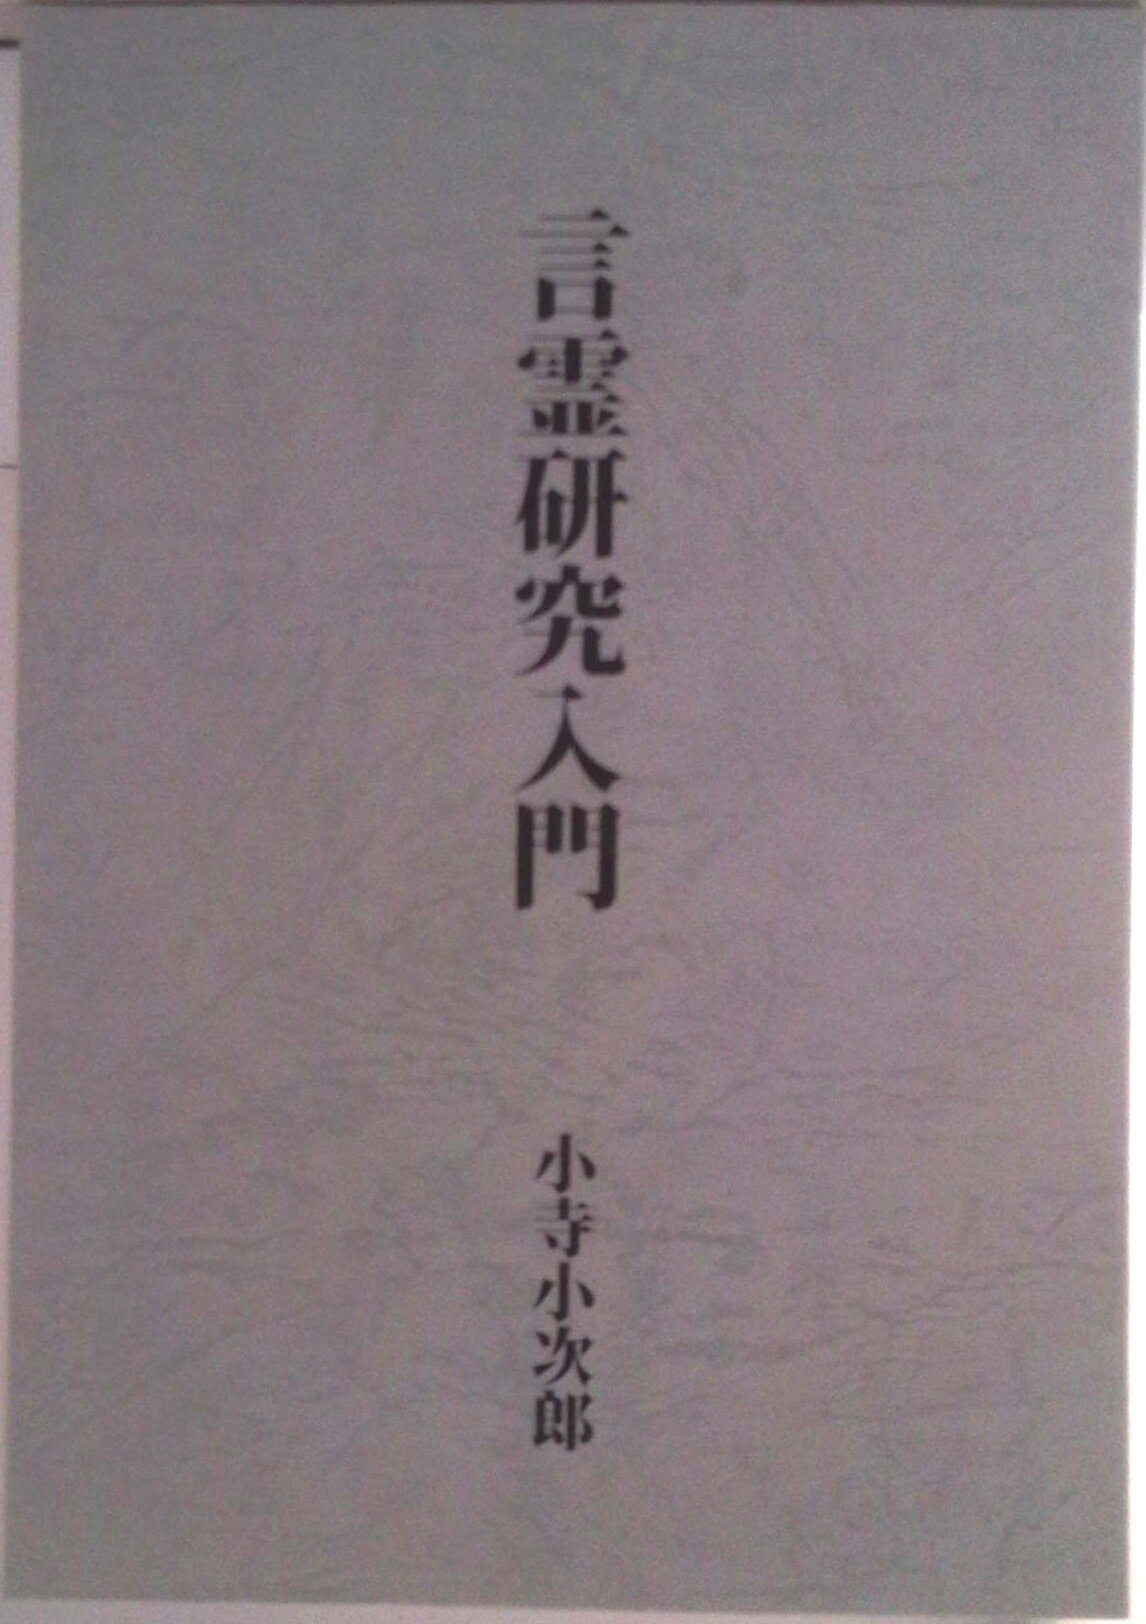 言霊研究入門
小寺小次郎